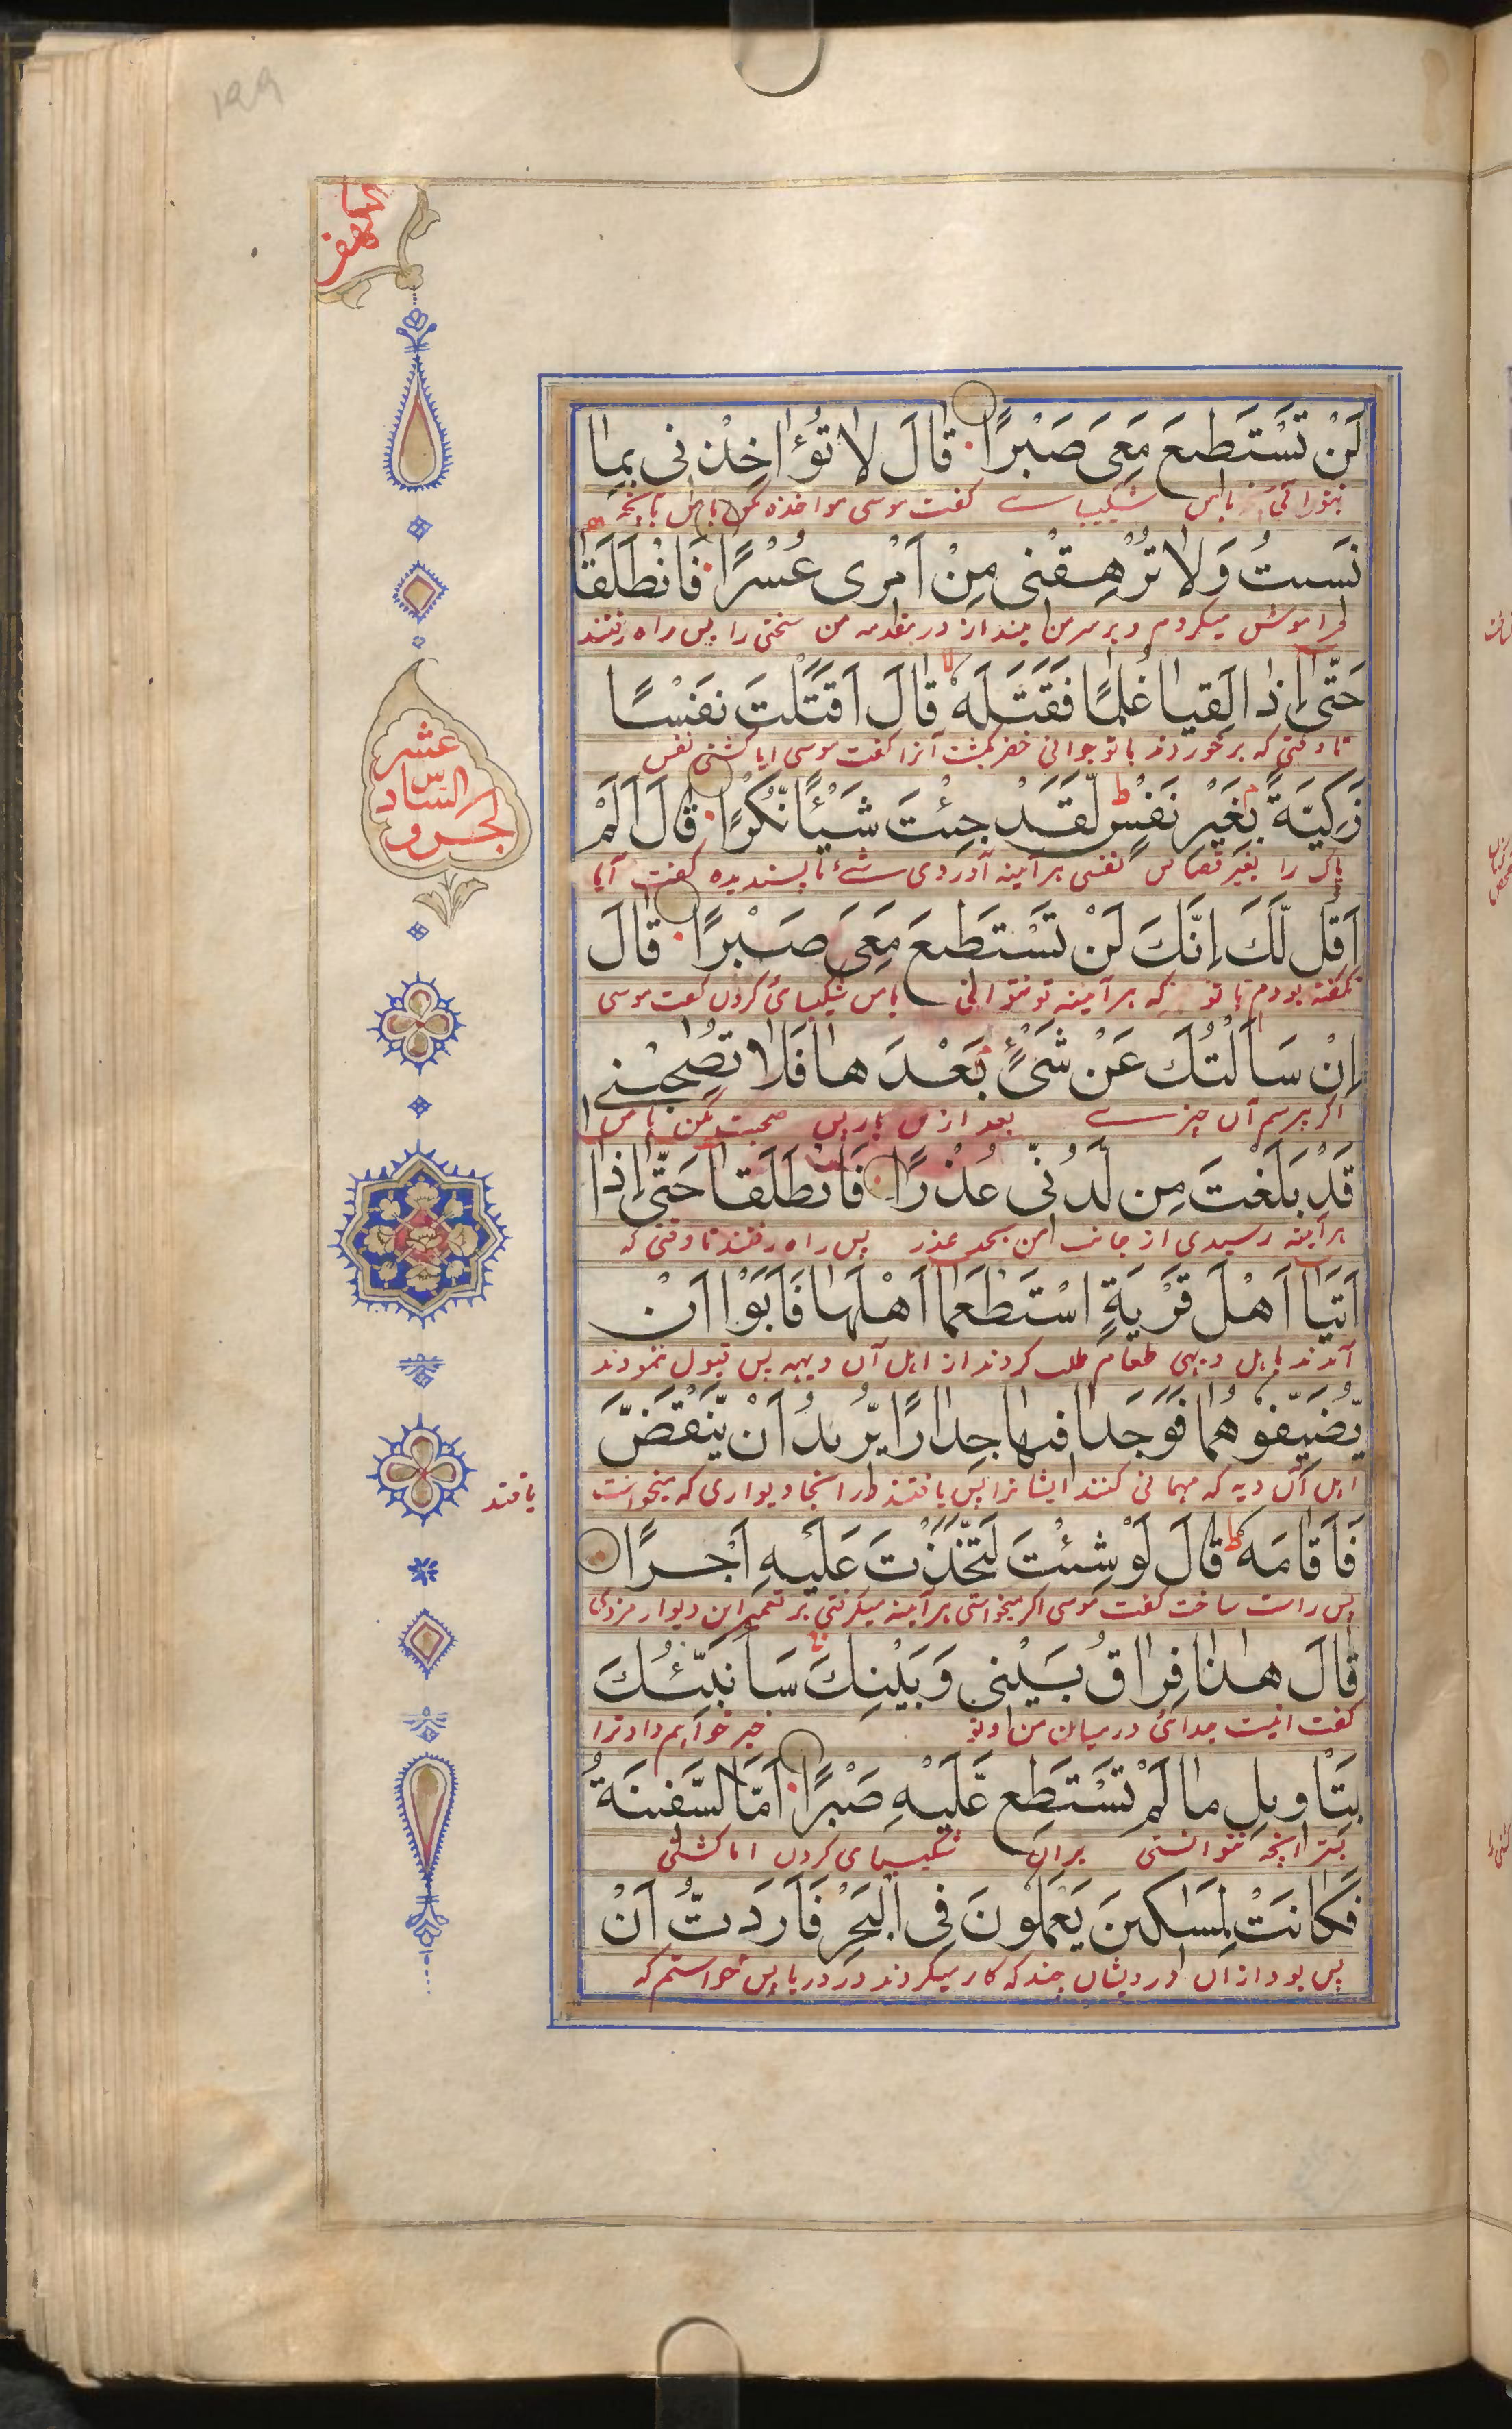 ۱۹۹
الكهف
لَنْ تَسْتَطيعَ مَعِىَ صَبْرًا قالَ لا تُؤاخِذْنى بِما
نتوانى با من شکیبایے گفت موسی مواخذه مکن با من بآنچه
نَسيتُ وَلا تُرْهِقْنى مِنْ اَمْرى عُسْرًا فَانْطَلَقا
فراموش میکردم و بر سر من مینداز در مقدمه من سختی را پس راه رفتند
حَتّى اِذا لَقِيا غُلٰمًا فَقَتَلَهُ قالَ اَقَتَلْتَ نَفْسًا
تا وقتی که برخوردند با نوجوانی خضر بکشت آنرا گفت موسی ایا کشتی نفس
زَكِيَّةً بِغَيْرِ نَفْسٍ لَقَدْ جِئْتَ شَيْئًا نُّكْرًا قالَ اَلَمْ
پاک را بغیر قصاص نفسی هر آینه آوردی شئ ناپسندیده گفت آیا
اَقُل لَّكَ اِنَّكَ لَنْ تَسْتَطيعَ مَعِىَ صَبْرًا قالَ
نگفته بودم با تو که هر آینه تو نتوانی با من شکیبائ کردن گفت موسی
اِنْ سَاَلْتُكَ عَنْ شَىْءٍ بَعْدَ ها فَلا تُصٰحِبْنى
اگر پرسم آن چیزے بعد ازین بار پس صحبت مکن با من
قَدْ بَلَغْتَ مِن لَّدُنّى عُذْرًا فَانْطَلَقا حَتّى اِذا
هر آینه رسیدی از جانب من بحد عذر پس راه رفتند تا وقتی که
اَتَيا اَهْلَ قَرْيَةٍ اسْتَطْعَما اَهْلَها فَاَبَوْا اَنْ
آمدند باهل دیهی طعام طلب کردند از اهل آن دیهه پس قبول ننمودند
يُّضَيِّفُوهُما فَوَجَدا فيها جِدارًا يُّريدُ اَنْ يَّنْقَضَّ
اهل آن دیه که مهمانی کنند ایشانرا پس یافتند در آنجا دیواری که میخواست
یافتند
فَاَقامَهُ قالَ لَوْ شِئْتَ لَتَّخَذْتَ عَلَيْهِ اَجْرًا
پس راست ساخت گفت موسی اگر میخواستی هر آینه میگرفتی بر تعمیر این دیوار مزدی
قالَ هٰذا فِراقُ بَيْنى وَبَيْنِكَ سَاُنَبِّئُكَ
گفت اینست جدائی درمیان من و تو خبر خواهم داد ترا
بِتَاْويلِ ما لَمْ تَسْتَطِع عَّلَيْهِ صَبْرًا اَمَّا السَّفينَةُ
آنچه نتوانستی بران شکیبای کردن اما کشتی
فَكانَتْ لِمَسٰكينَ يَعْمَلُونَ فِى الْبَحْرِ فَاَرَدتُّ اَنْ
پس بود از آن درویشان چند که کار میکردند در دریا پس خواستم که
عشر
السّادس
الجزو